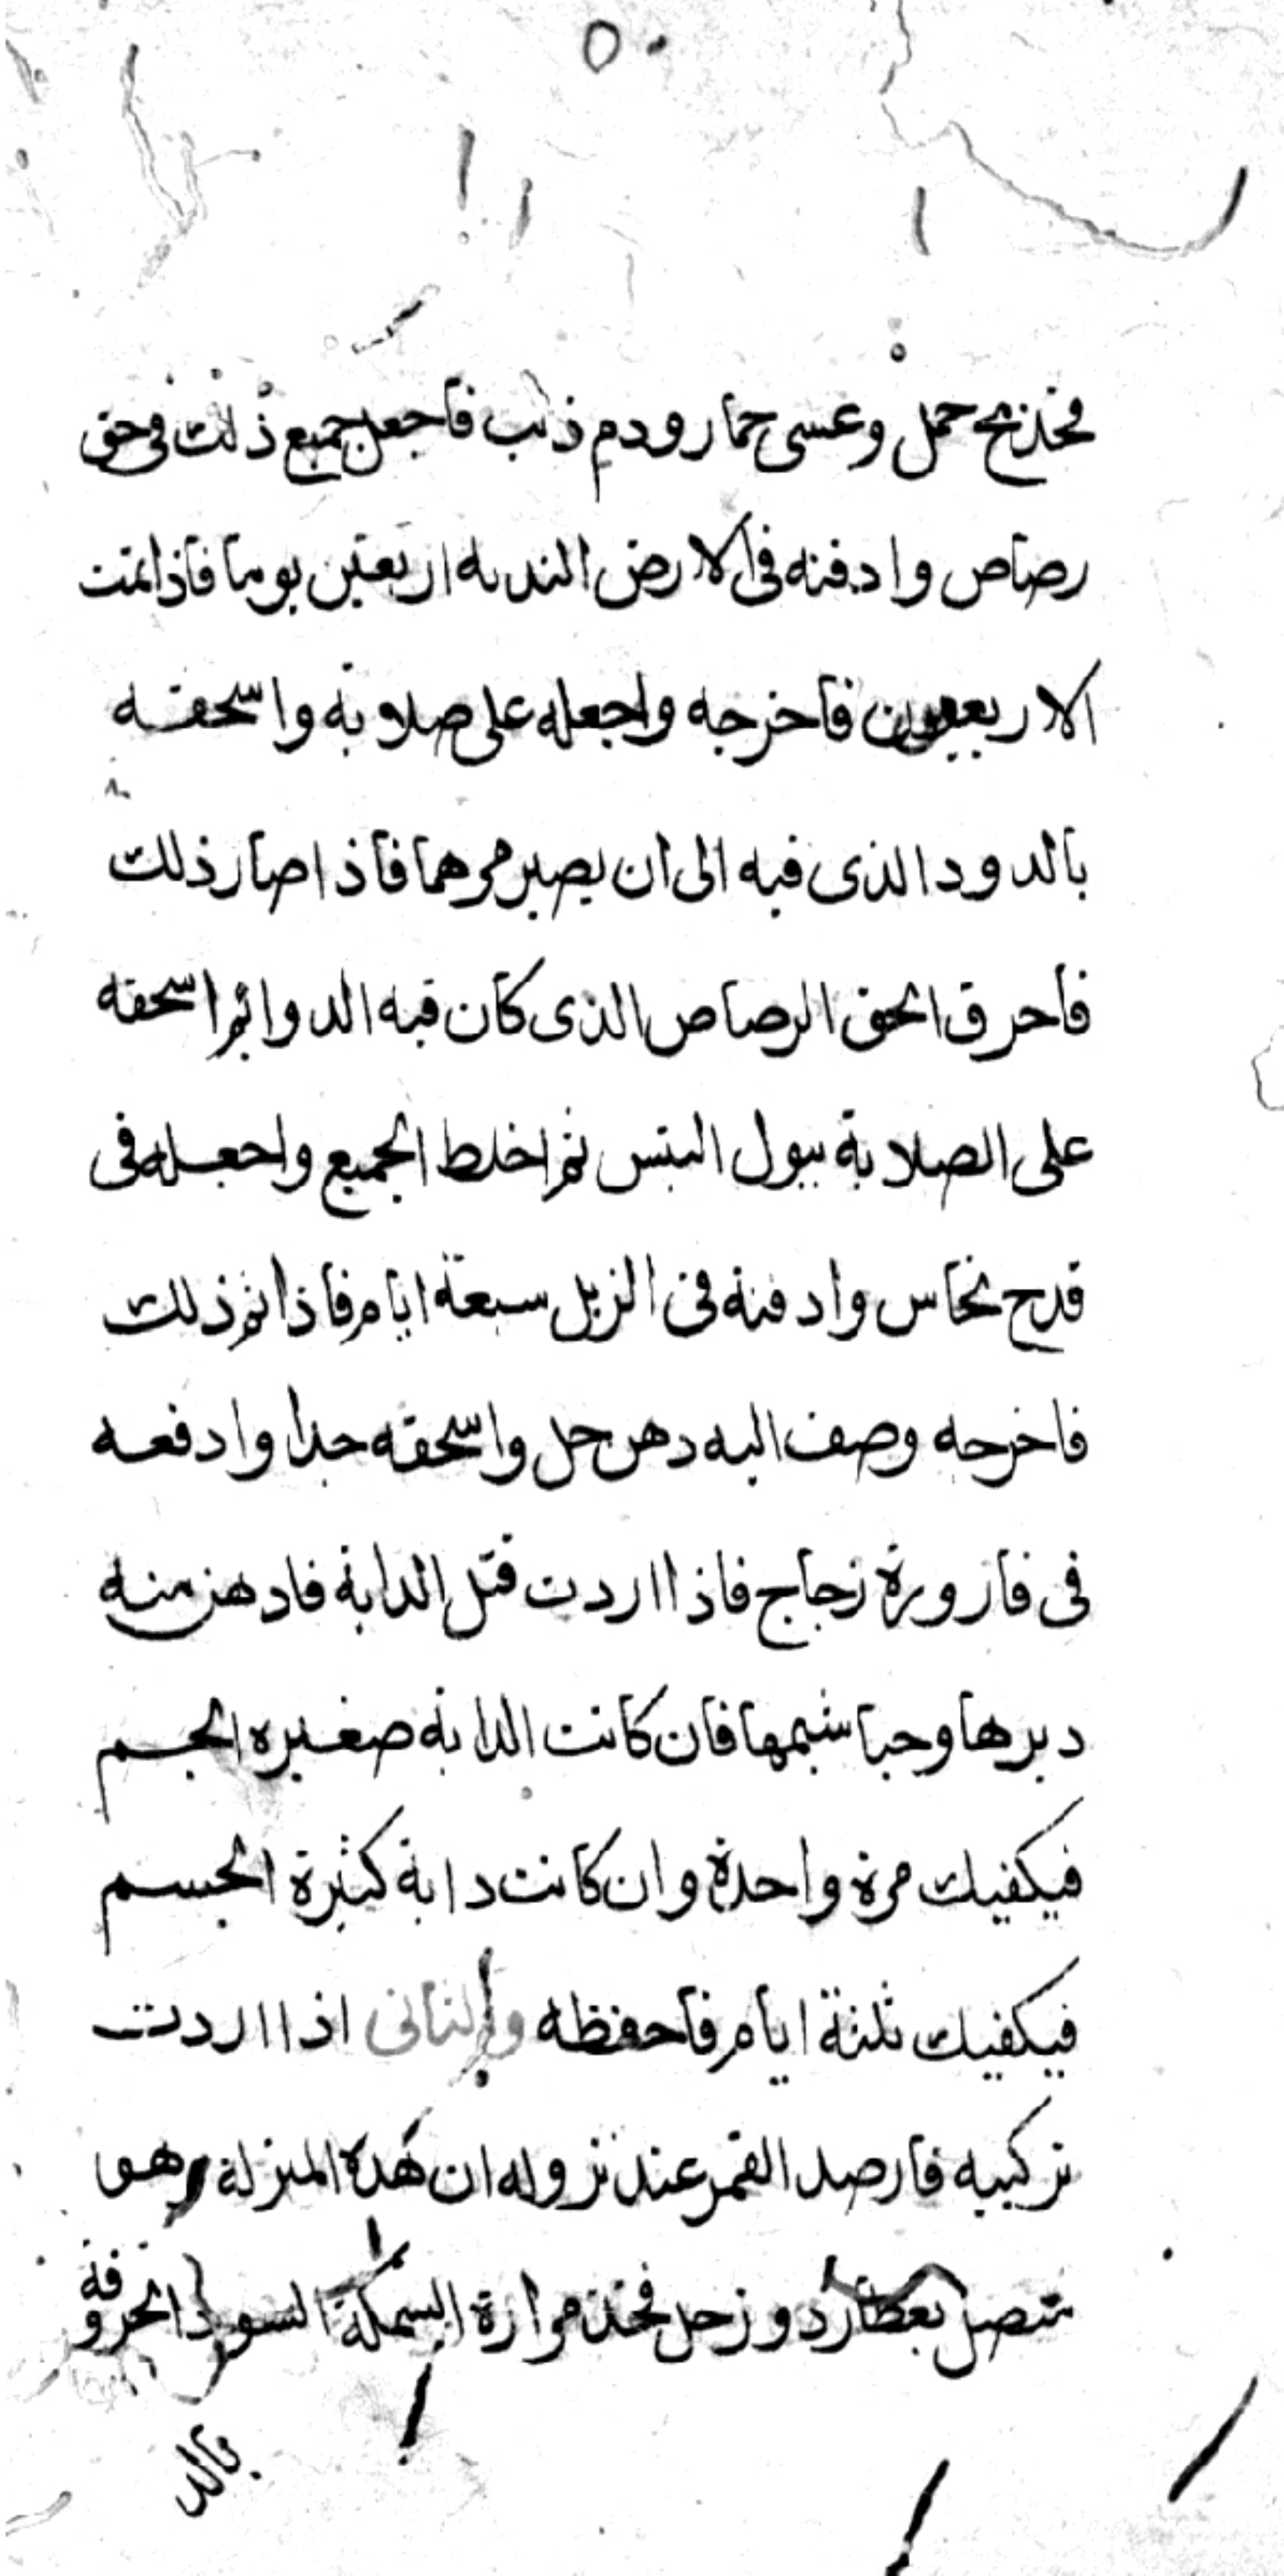 ٥٠
فخذ مخ حمل وعسى حمار ودم ذئب فاجعل جميع ذلك فى حق
رصاص وادفنه فى الارض النديه اربعين يوما فاذا تمت
الاربعون فاخرجه واجعله على صلابة واسحقه
بالدود الذى فيه الى ان يصير مرهما فاذا صار ذلك
فاحرق الحق الرصاص الذى كان فيه الدوا ثم اسحقه
على الصلابة ببول التيس ثم اخلط الجميع واجعله فى
قدح نحاس وادفنه فى الزبل سبعة ايام فاذا تم ذلك
فاخرجه وصف اليه دهن حل واسحقه جدا وادفعه
فى قارورة زجاج فاذا اردت قتل الدابة فادهن منه
دبرها وخياشيمها فان كانت الدابة صغيره الجسم
فيكفيك مرة واحدة وان كانت دابة كثيرة الجسم
فيكفيك ثلثة ايام فاحفظه والثانى اذا اردت
تركيبه فارصد القمر عند نزوله ان هذه المنزلة وهو
متصل بعطارد وزحل فخذ مرارة السمكة السودا المحروفة
بالد